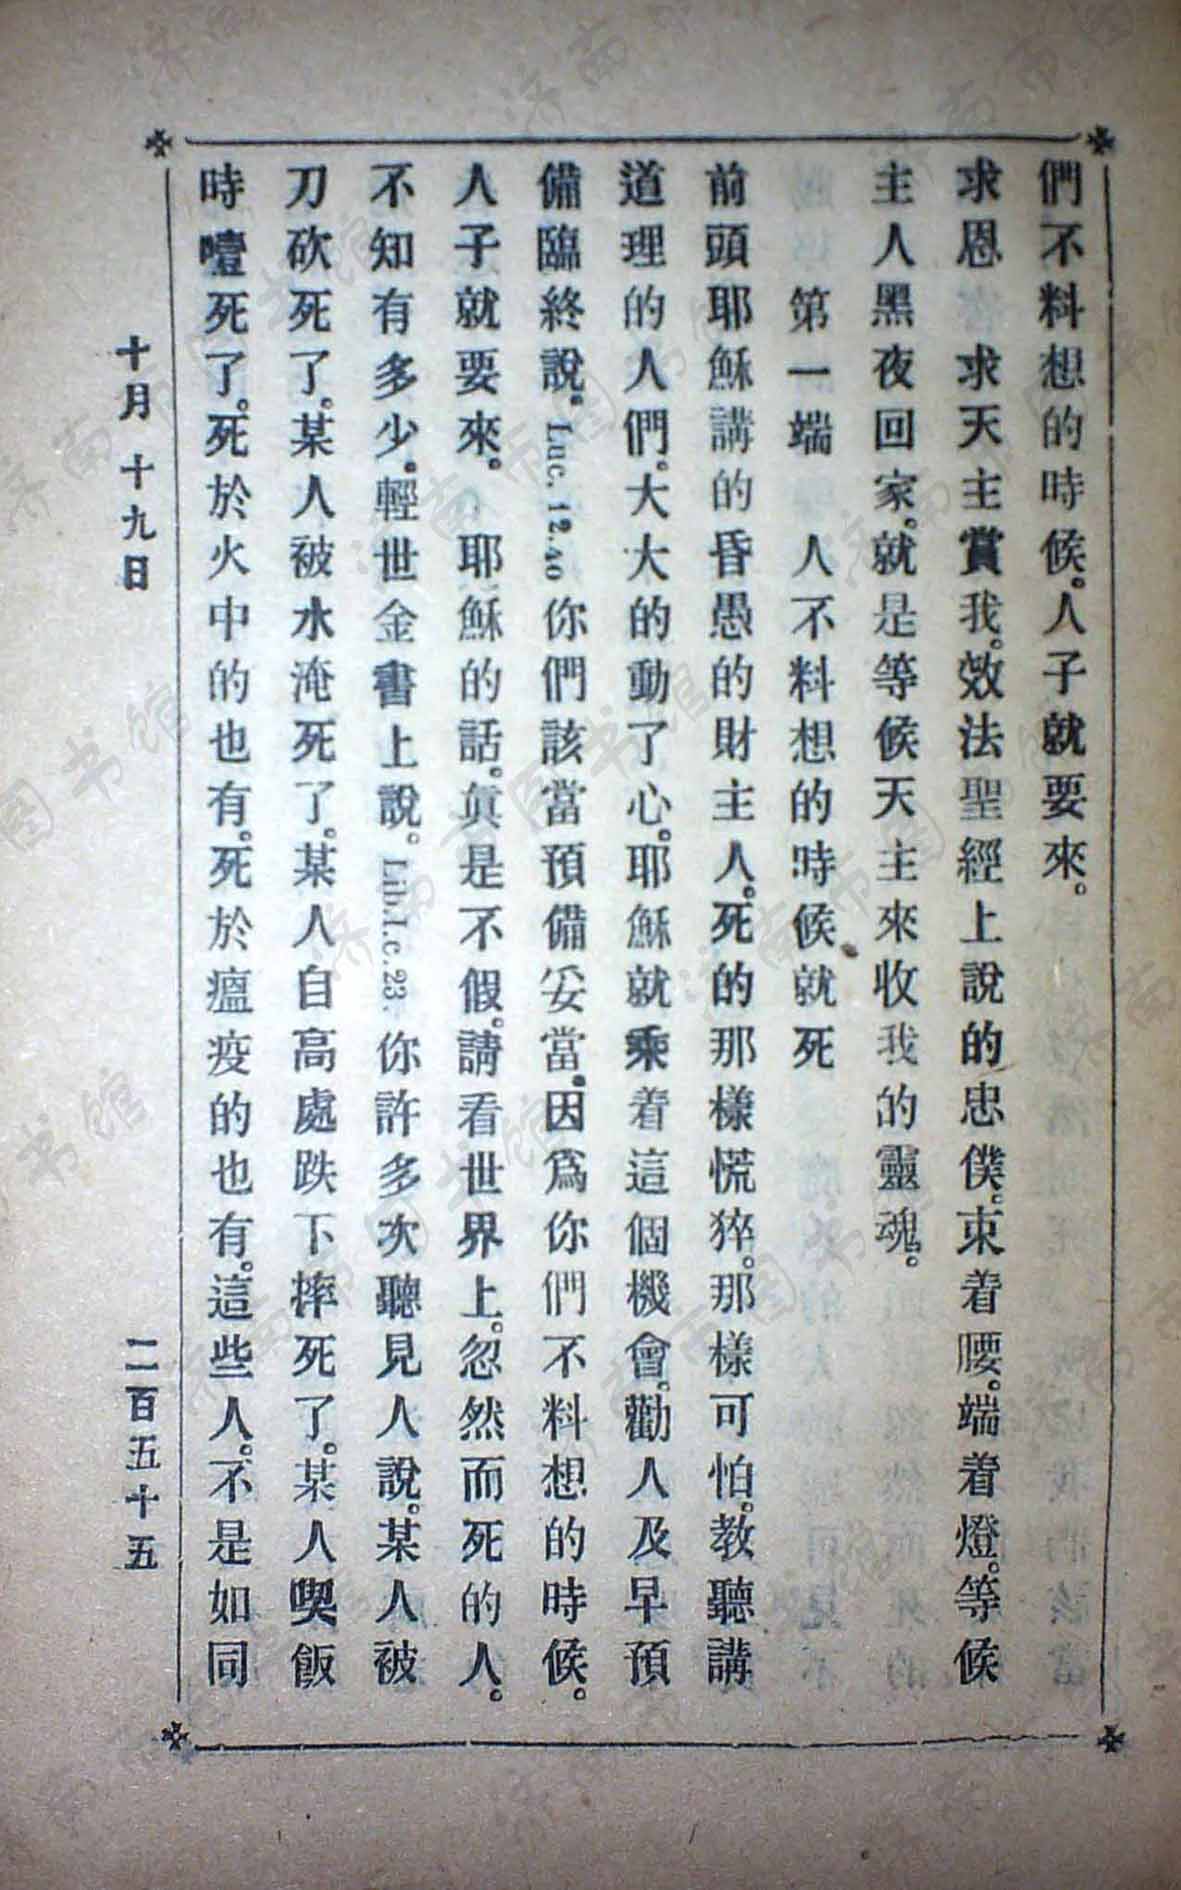 們不料想的時候。人子就要來。
求恩　求天主賞我。效法聖經上說的忠僕。束着腰。端着燈。等候
主人黑夜回家。就是等候天主來收我的靈魂。
第一端　人不料想的時候就死
前頭耶穌講的昏愚的財主人。死的那樣慌猝。那樣可怕。教聽講
道理的人們。大大的動了心。耶穌就乘着這個機會。勸人及早預
備臨終說。Luc. 12.40 你們該當預備妥當。因爲你們不料想的時候。
人子就要來。　耶穌的話。眞是不假。請看世界上。忽然而死的人。
不知有多少。輕世金書上說。Lib.I.c.23. 你許多次聽見人說。某人被
刀砍死了。某人被水淹死了。某人自高處跌下摔死了。某人喫飯
時噎死了。死於火中的也有。死於瘟疫的也有。這些人。不是如同
十月十九日　二百五十五
济南市图书馆